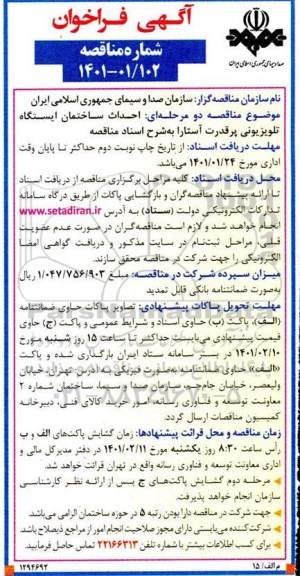 آگهی فراخوان
شماره مناقصه
۱۴۰۱-۰۱/۱۰۲
صدا و سیمای جمهوری اسلامی ایران
نام سازمان مناقصه‌گزار: سازمان صدا و سیمای جمهوری اسلامی ایران
موضوع مناقصه دو مرحله‌ای: احداث ساختمان ایستگاه
تلویزیونی پرقدرت آستارا به‌شرح اسناد مناقصه
مهلت دریافت اسناد: از تاریخ چاپ نوبت دوم حداکثر تا پایان وقت
اداری مورخ ۱۴۰۱/۰۱/۲۴ می‌باشد.
محل دریافت اسناد: کلیه مراحل برگزاری مناقصه از دریافت اسناد
تا ارائه پیشنهاد مناقصه‌گران و بازگشایی پاکات از طریق درگاه سامانه
تدارکات الکترونیکی دولت (ستاد) به آدرس www.setadiran.ir
انجام خواهد شد و لازم است مناقصه‌گران در صورت عدم عضویت
قبلی مراحل ثبت‌نام در سایت مذکور و دریافت گواهی امضا
الکترونیکی را جهت شرکت در مناقصه محقق سازند.
میزان سپرده شرکت در مناقصه: مبلغ ۱/۰۴۷/۷۵۶/۹۰۳ ریال
به‌صورت ضمانتنامه بانکی قابل تمدید
مهلت تحویل پاکات پیشنهادی: تصاویر پاکات حاوی ضمانتنامه
(الف)، پاکت (ب) حاوی اسناد و شرایط عمومی و پاکت (ج) حاوی
قیمت پیشنهادی می‌بایستی حداکثر تا ساعت ۱۵ روز شنبه مورخ
۱۴۰۱/۰۲/۱۰ در بستر سامانه ستاد ایران بارگذاری شده و پاکت
«الف» حاوی ضمانتنامه به‌صورت فیزیکی به آدرس تهران، خیابان
ولیعصر، خیابان جام‌جم، سازمان صدا و سیما، ساختمان شماره ۲
معاونت توسعه و فناوری رسانه، امور خرید کالای فنی، دبیرخانه
کمیسیون مناقصات ارسال گردد.
زمان مناقصه و محل قرائت پیشنهادها: زمان گشایش پاکت‌های الف و ب
رأس ساعت ۸:۳۰ روز یکشنبه مورخ ۱۴۰۱/۰۲/۱۱ در دفتر مدیرکل مالی و
اداری معاونت توسعه و فناوری رسانه واقع در تهران قرائت خواهد شد.
مرحله دوم گشایش پاکت‌های ج پس از ارائه نظر کارشناسی
سازمان انجام خواهد پذیرفت.
جهت شرکت در مناقصه دارا بودن رتبه ۵ در حوزه ساختمان الزامی می‌باشد.
شرکت‌کننده می‌بایستی دارای مجوز صلاحیت انجام امور از مراجع ذیصلاح باشد.
برای کسب اطلاعات بیشتر با شماره تلفن ۲۲۱۶۶۳۱۳ تماس حاصل فرمایید.
م الف/ ۱۵
۱۲۹۴۶۹۲